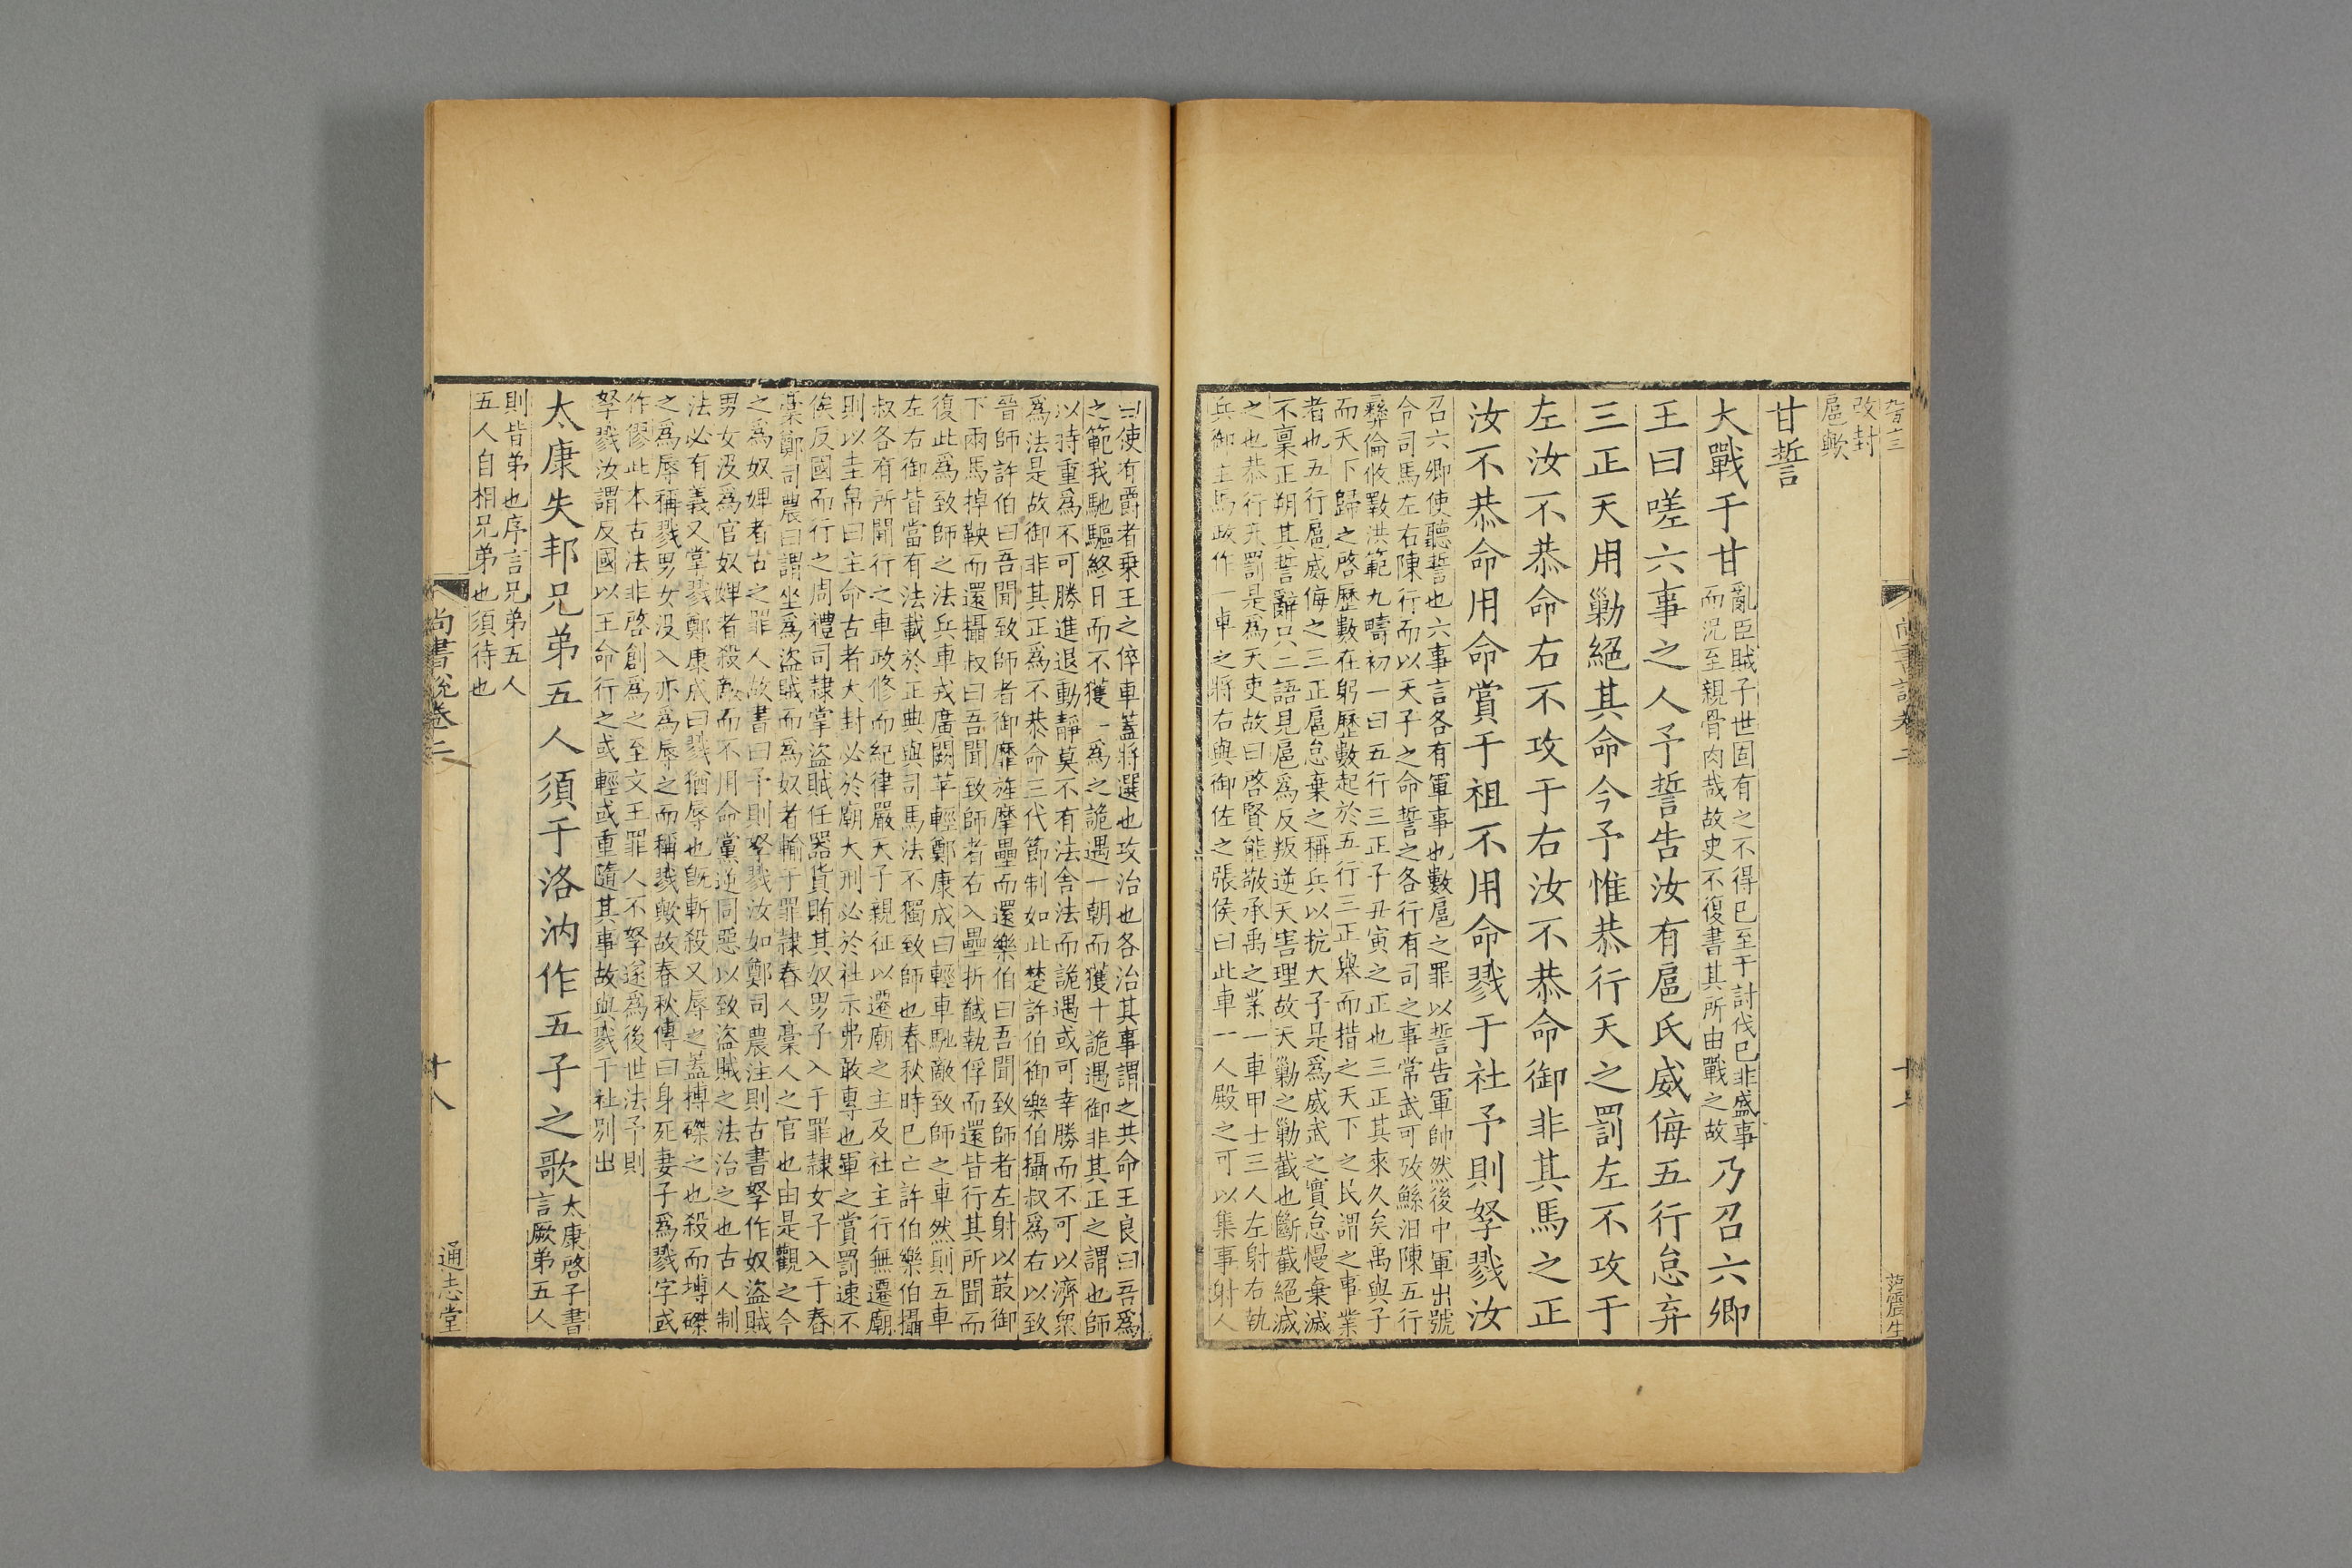 改封
扈歟
甘誓
大戰于甘
亂臣賊子世固有之不得已至于討伐已非盛事
而況至親骨肉哉故史不復書其所由戰之故
乃召六卿
王曰嗟六事之人予誓告汝有扈氏威侮五行怠弃
三正天用勦絕其命今予惟恭行天之罰左不攻于
左汝不恭命右不攻于右汝不恭命御非其馬之正
汝不恭命用命賞于祖不用命戮于社予則孥戮汝
召六卿使聽誓也六事言各有軍事也數扈之罪以誓告軍帥然後中軍出號
令司馬左右陳行而以天子之命誓之各行有司之事常武可攷鯀汨陳五行
彝倫攸斁洪範九疇初一曰五行三正子丑寅之正也三正其來久矣禹與子
而天下歸之啓歷數在躬歷數起於五行三正舉而措之天下之民謂之事業
者也五行扈威侮之三正扈怠棄之稱兵以抗大子是爲威武之實怠慢棄滅
不稟正朔其誓辭只二語見扈爲反叛逆天害理故天勦之勦截也斷截絕滅
之也恭行天罰是爲天吏故曰啓賢能敬承禹之業一車甲士三人左射右執
兵御主馬政作一車之將右與御佐之張侯曰此車一人殿之可以集事射人
尚書說卷二
曰使有爵者乗王之倅車蓋將選也攻治也各治其事謂之共命王良曰吾爲
之範我馳驅終日而不獲一爲之詭遇一朝而獲十詭遇御非其正之謂也師
以持重爲不可勝進退動靜莫不有法舍法而詭遇或可幸勝而不可以濟衆
爲法是故御非其正爲不恭命三代節制如此楚許伯御樂伯攝叔爲右以致
晉師許伯曰吾聞致師者御靡旌摩壘而還樂伯曰吾聞致師者左射以菆御
下兩馬掉鞅而還攝叔曰吾聞致師者右入壘折馘執俘而還皆行其所聞而
復此爲致師之法兵車戎廣闕苹輕鄭康成曰輕車馳敵致師之車然則五車
左右御皆當有法載於正典與司馬法不獨致師也春秋時已亡許伯樂伯攝
叔各有所聞行之車政修而紀律嚴天子親征以遷廟之主及社主行無遷廟
則以圭帛曰主命古者大封必於廟大刑必於社示弗敢專也軍之賞罰速不
俟反國而行之周禮司隷掌盜賊任器貨賄其奴男子入于罪隷女子入于舂
稾鄭司農曰謂坐爲盜賊而爲奴者輸于罪隷舂人稾人之官也由是觀之今
之爲奴婢者古之罪人故書曰予則孥戮汝如鄭司農注則古書孥作奴盜賊
男女沒爲官奴婢者殺敵而不用命黨逆同惡以致盜賊之法治之也古人制
法必有義又掌戮鄭康成曰戮猶辱也旣斬殺又辱之蓋搏磔之也殺而搏磔
之爲辱稱戮男女沒入亦爲辱之而稱戮歟故春秋傳曰身死妻子爲戮字或
作僇此本古法非啓創爲之至文王罪人不孥遂爲後世法予則
孥戮汝謂反國以王命行之或輕或重隨其事故與戮于社別出
太康失邦兄弟五人須于洛汭作五子之歌
太康啓子書
言厥弟五人
則皆弟也序言兄弟五人
五人自相兄弟也須待也
尚書說卷二
十八
通志堂